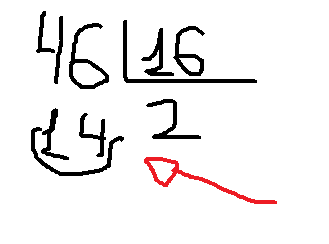 46 16
14 2